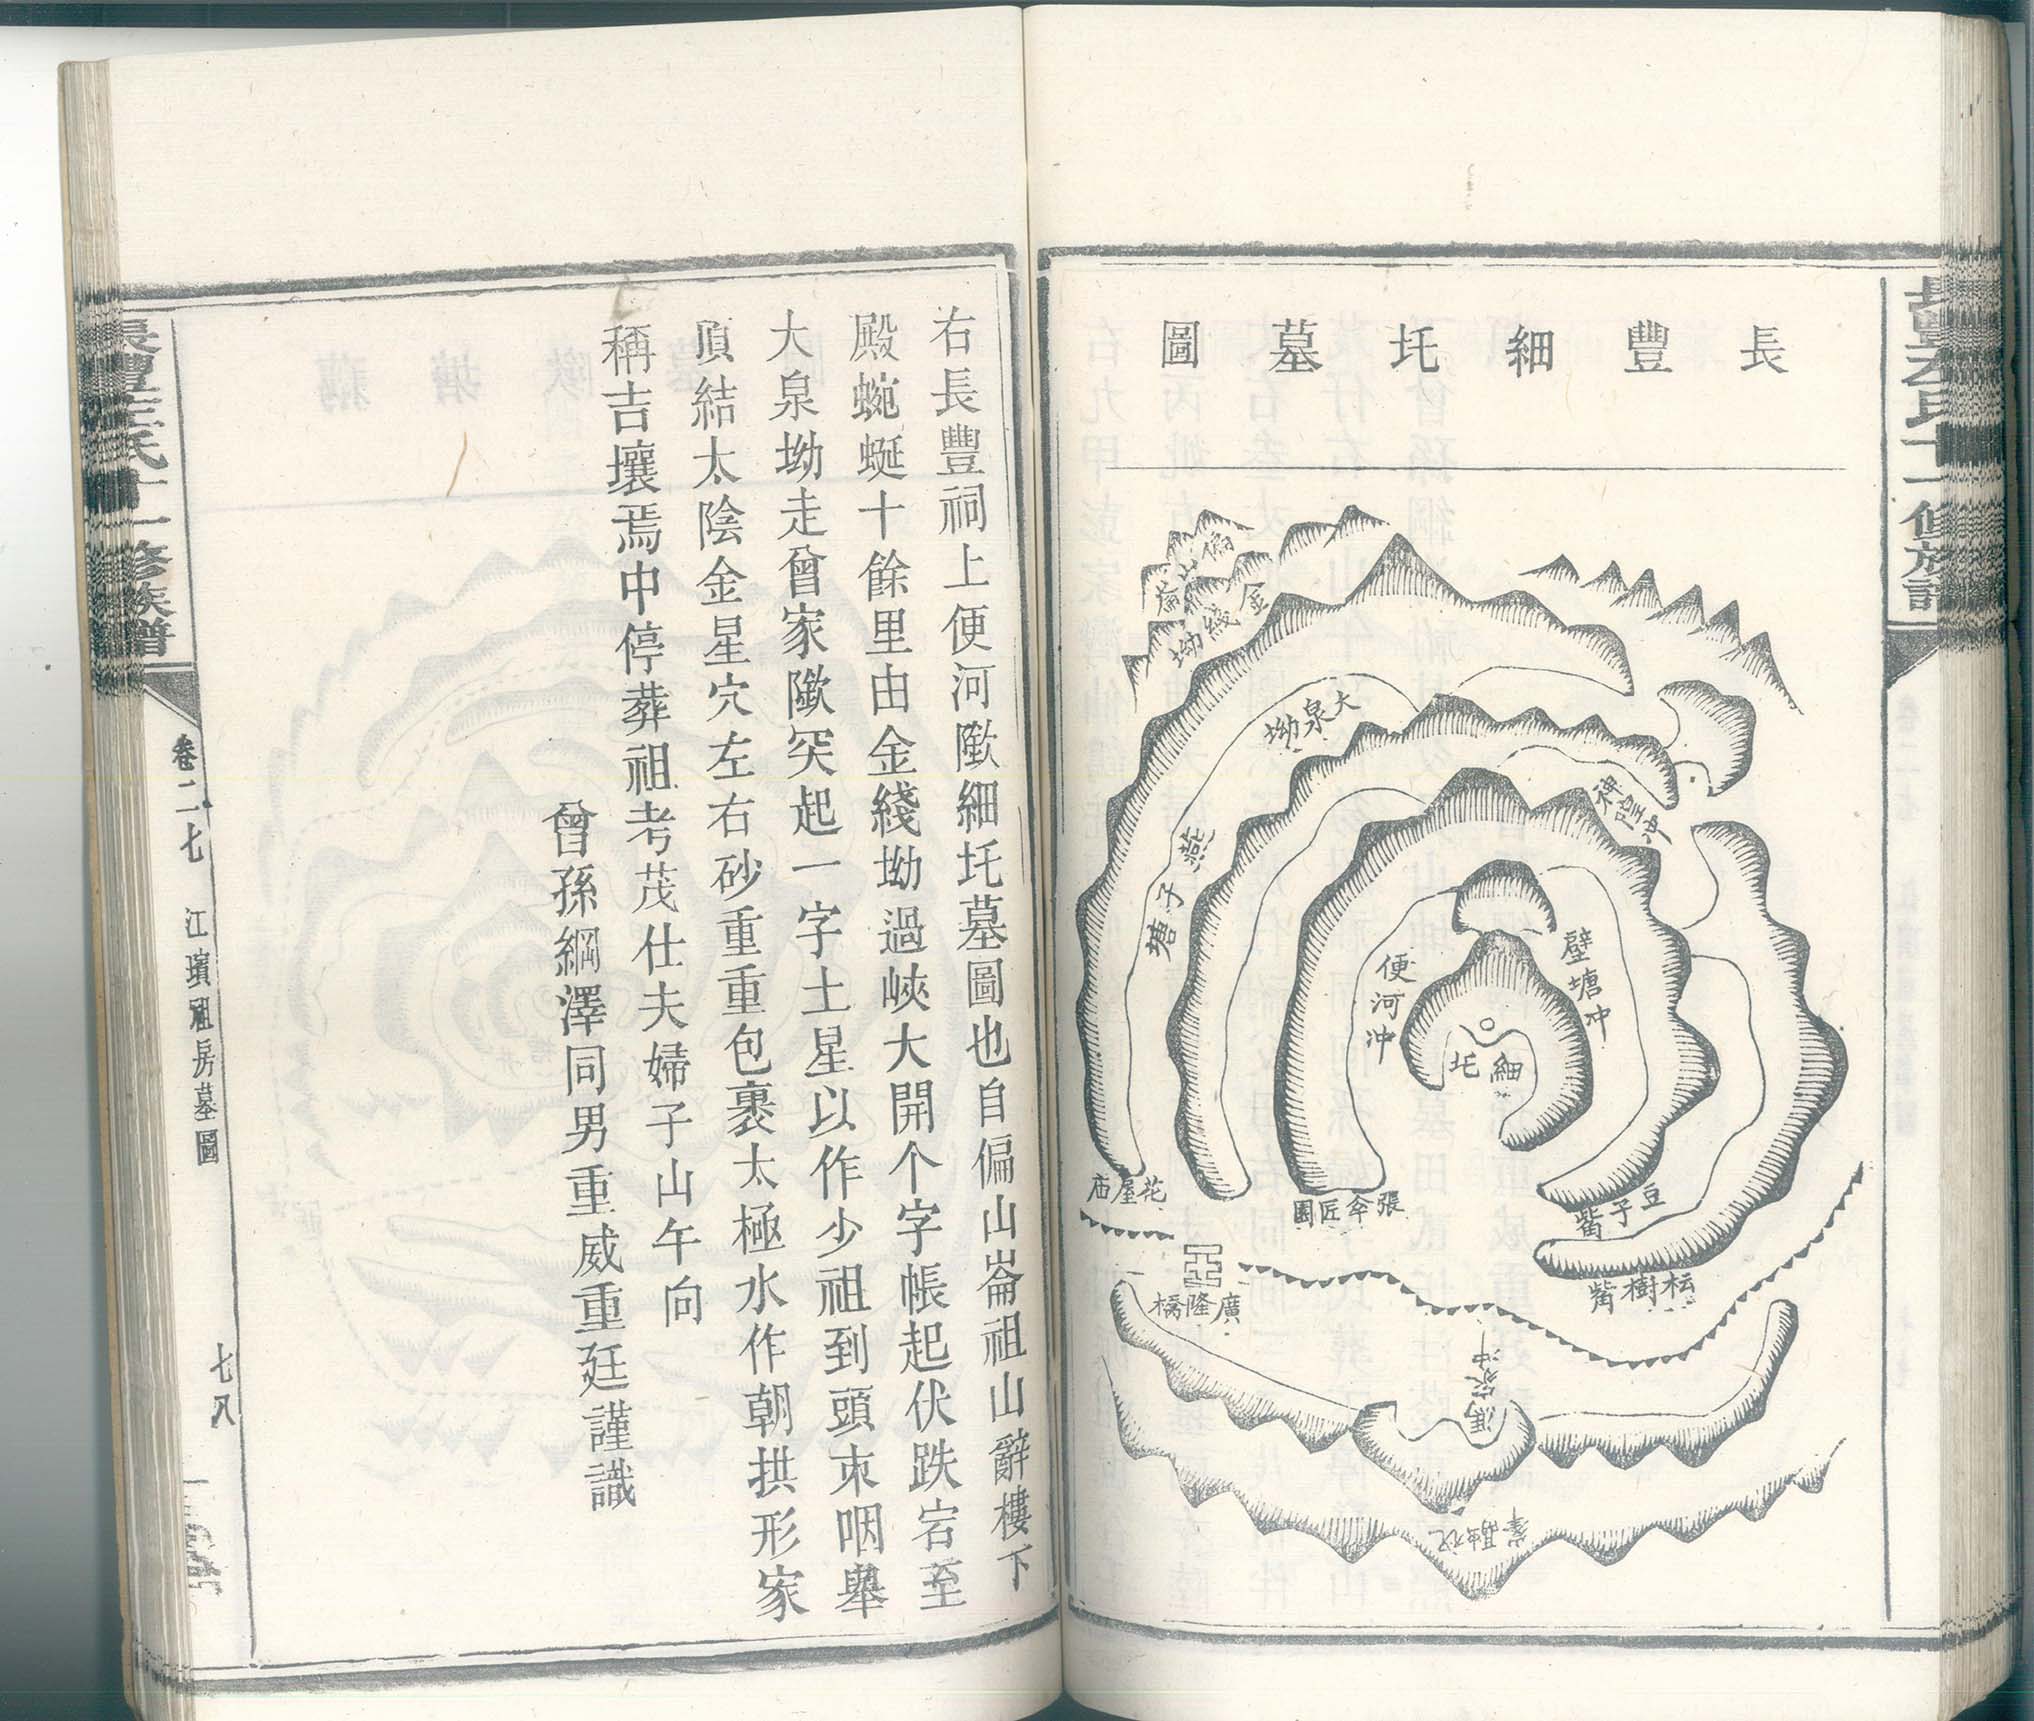 長豐細圫墓圖
偏山崙
金綫坳
大泉坳
禪隍冲
燕子塘
壁塘冲
便河冲
細圫
花屋庙
張伞匠園
豆子觜
枟樹觜
廣隆橋
馮家冲
祝融峯
右長豐祠上便河歇細圫墓圖也自偏山崙祖山辭樓下
殿蜿蜒十餘里由金綫坳過峽大開个字帳起伏跌宕至
大泉坳走曾家歇突起一字土星以作少祖到頭束咽舉
頂結太陰金星穴左右砂重重包裹太極水作朝拱形家
稱吉壤焉中停葬祖考茂仕夫婦子山午向
曾孫綱澤同男重威重廷謹識
十一修族譜
卷二七
江璸祖房墓圖
七八